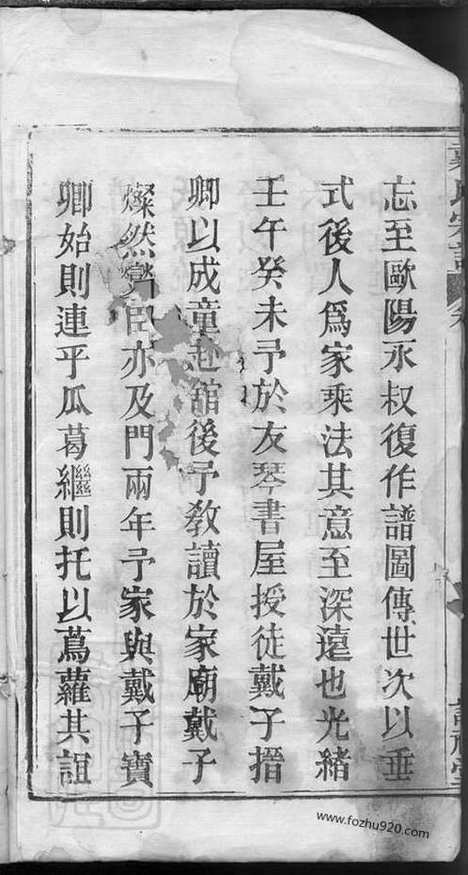 忘至歐陽永叔復作譜圖傳世次以垂
式後人爲家乘法其意至深遠也光緒
壬午癸未予於友琴書屋授徒戴子搢
卿以成童赴舘後予敎讀於家廟戴子
燦然臣亦及門兩年予家與戴子寶
卿始則連乎瓜葛繼則托以蔦蘿其誼
www.fozhu920.com